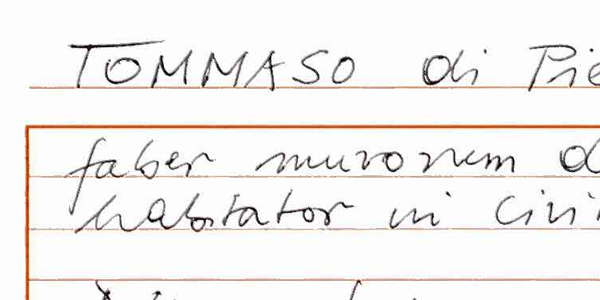 TOMMASO di Pie
faber murorum d
habitator in Civi